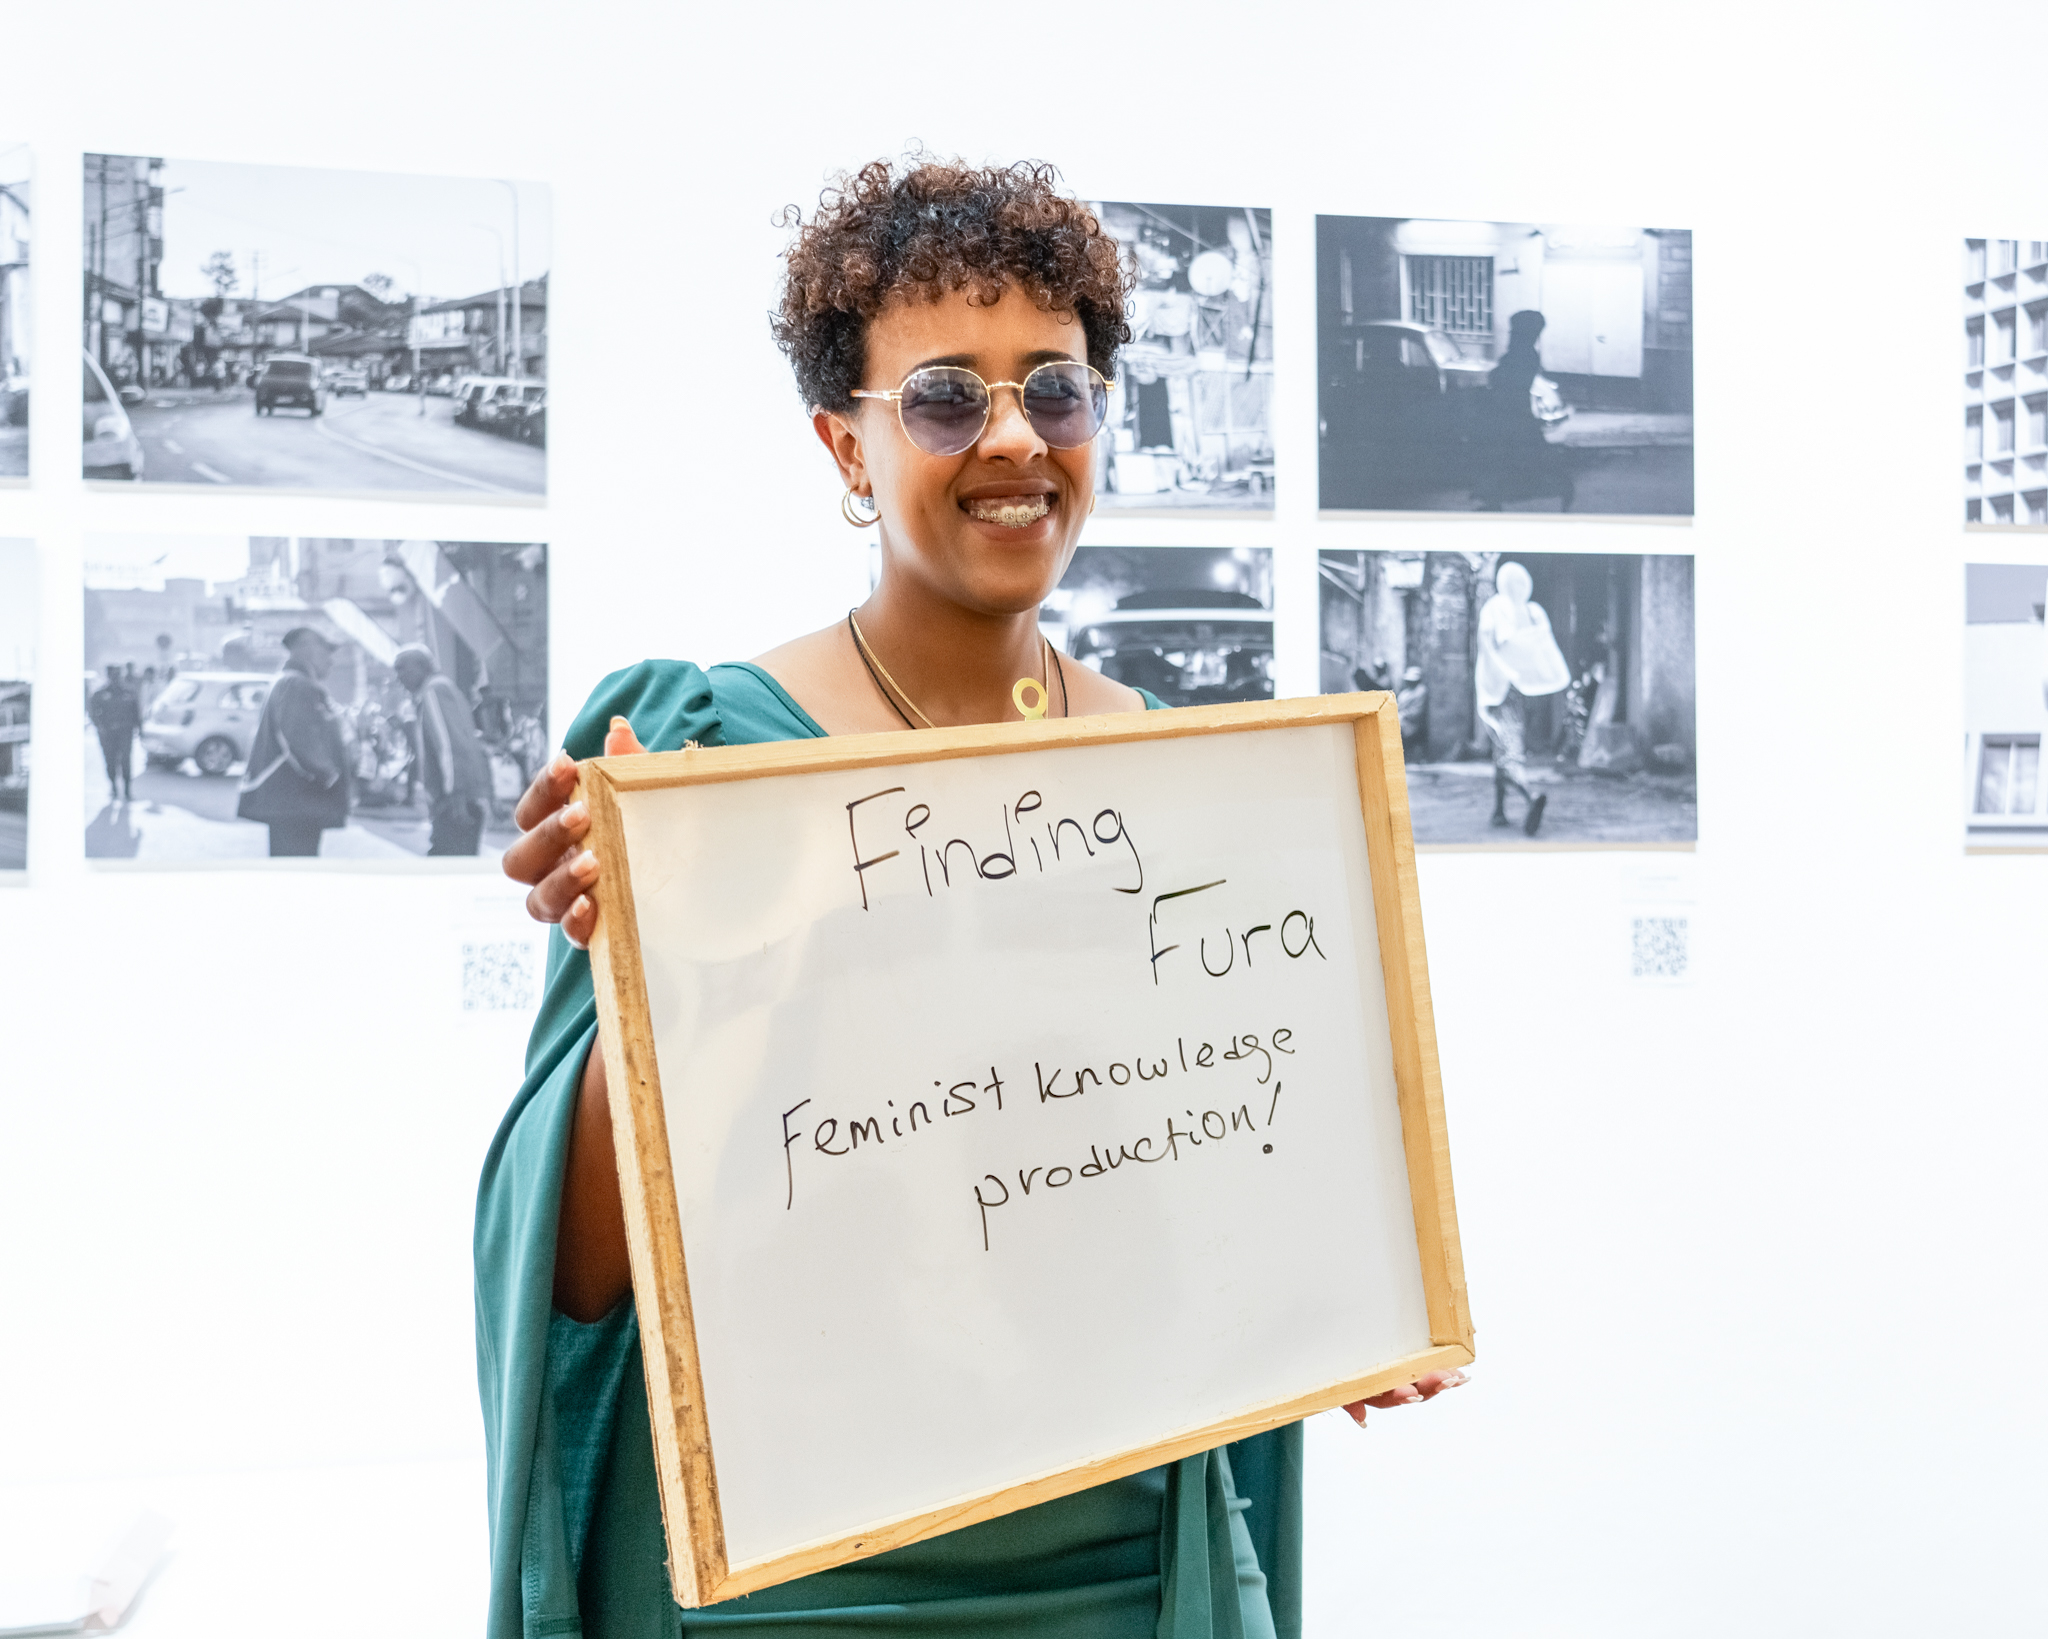 Finding
Fura
Feminist knowledge
production!